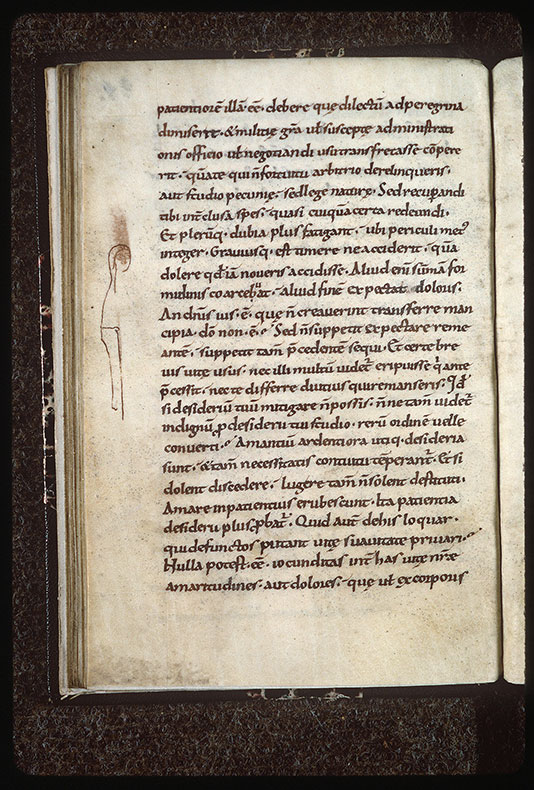 patientiorē illā eē· debere quę dilectū ad peregrina
dimiserit· & militię grā ut͛ susceptę administrati
onis officio ut͛ negotiandi usu transfretasse cōpere
rit· quā te qui ñ fortuitu arbitrio derelinqueris,
aut studio pecunię· sed lege naturę· Sed recuperandi
tibi int͛clusa spes· quasi cuiquā certa redeundi·
Et plerūq; dubia plus fatigant· ubi periculi met9
integer· Grauiusq; est timere ne acciderit· quā
dolere qđ iā noueris accidisse· Aliud enī summā for
midinis coaceruat· aliud finē expectat doloris·
An dn̄is ius· ē· quę n̄ creauerint transferre man
cipia· dō non· ē· Sed n̄ suppetit expectare reme
antē· suppetit tam̄ p̄cedentē sequi· Et certe bre
uis uitę usus· nec illi multū uidet͛ eripuisse q̇ ante
p̄cessit· nec te differre diutius qui remanseris· Qđ
si desideriū tuū mitigare n̄ possis· n̄ne tam̄ uidet͛
indignū p̱ desiderii tui studio· rerū ordinē uelle
conuerti· Amantiū ardentiora utiq; desideria
sunt· & tam̄ necessitatis contuitu tēperant͛· Et si
dolent discedere· lugere tam̄ n̄ solent destituti·
Amare inpatientius erubescunt· Ita patientia
desiderii plus p̱bat͛· Quid aut̄ de his loquar·
qui defunctos putant uitę suauitate priuari·
Nulla potest· eē· iocunditas int͛ has uitę nr̄ę
amaritudines· aut dolores· quę ut͛ ex corporis